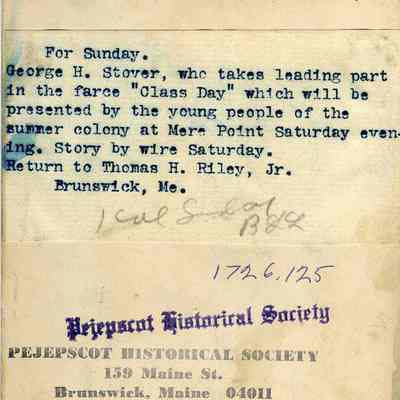 For Sunday.
George H. Stover, who takes leading part
in the farce "Class Day" which will be
presented by the young people of the
summer colony at Mere Point Saturday even-
ing. Story by wire Saturday.
Return to Thomas H. Riley, Jr.
Brunswick, Me.
1 col Sunday
1726.125
Pejepscot Historical Society
PEJEPSCOT HISTORICAL SOCIETY
159 Maine St.
Brunswick, Maine 04011